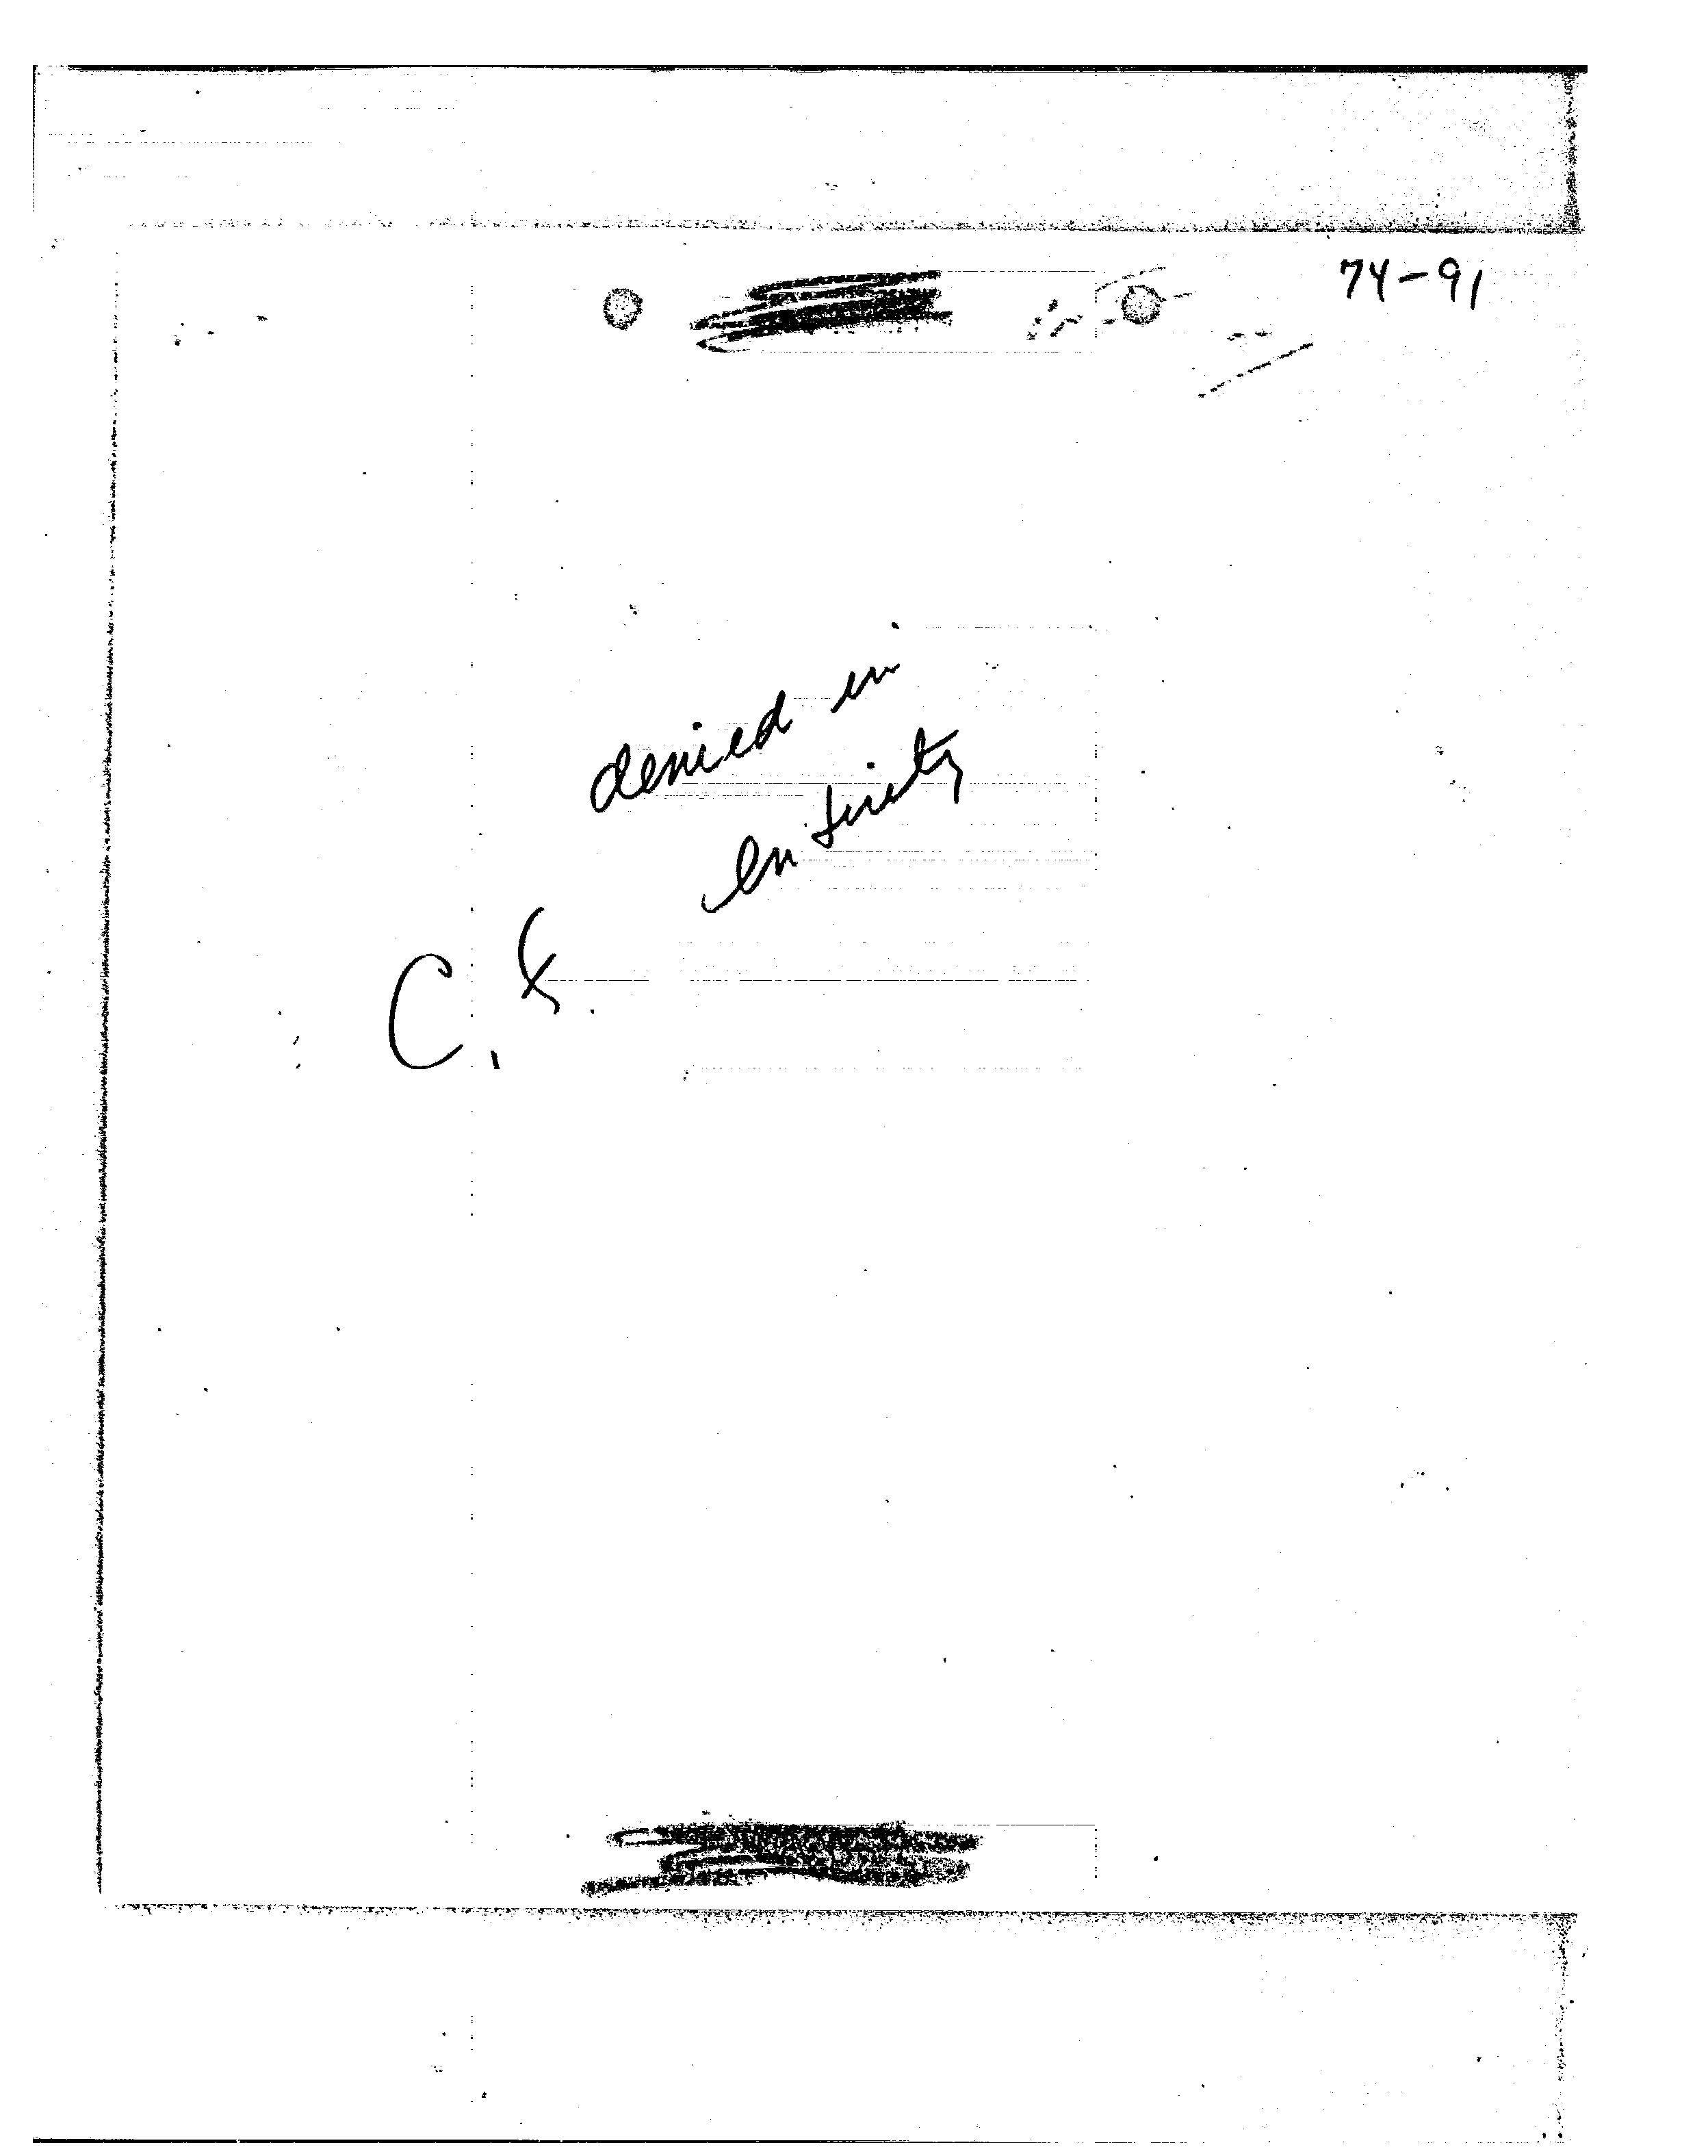 74-91
denied in
entirety
C.